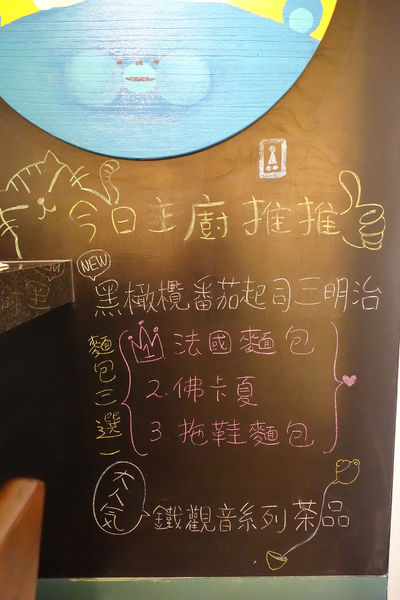 今日主廚推推
NEW
黑橄欖番茄起司三明治
麵包三選一
法國麵包
2.佛卡夏
3.拖鞋麵包
大人氣
鐵觀音系列茶品